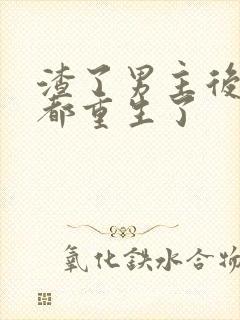 渣了男主後
都重生了
氧化鉄水合物